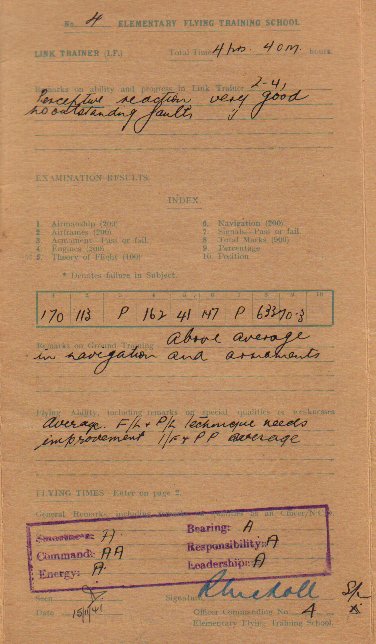 No. 4 ELEMENTARY FLYING TRAINING SCHOOL
LINK TRAINER (I.F.) Total Time 4 hrs. 40 m. hours.
Remarks on ability and progress in Link Trainer
Perceptive reaction very good
no outstanding faults
EXAMINATION RESULTS
INDEX.
1. Airmanship (200) 6. Navigation (200)
2. Airframes (200) 7. Signals—Pass or fail.
3. Armament—Pass or fail. 8. Total Marks (900)
4. Engines (200) 9. Percentage
5. Theory of Flight (100) 10. Position
* Denotes failure in Subject.
1 2 3 4 5 6 7 8 9 10
170 113 P 162 41 147 P 633 70.3
Remarks on Ground Training Above average
in navigation and armaments
Flying Ability, including remarks on special qualities or weaknesses
Average. F/L + P/L technique needs
improvement I/F + PP average
FLYING TIMES—Enter on page 2.
General Remarks, including as an Officer/N.C.O.
A Bearing: A
Command: AA Responsibility: A
Energy: A Leadership: A
Seen Signature S/L
Date Officer Commanding No. 4
Elementary Flying Training School.